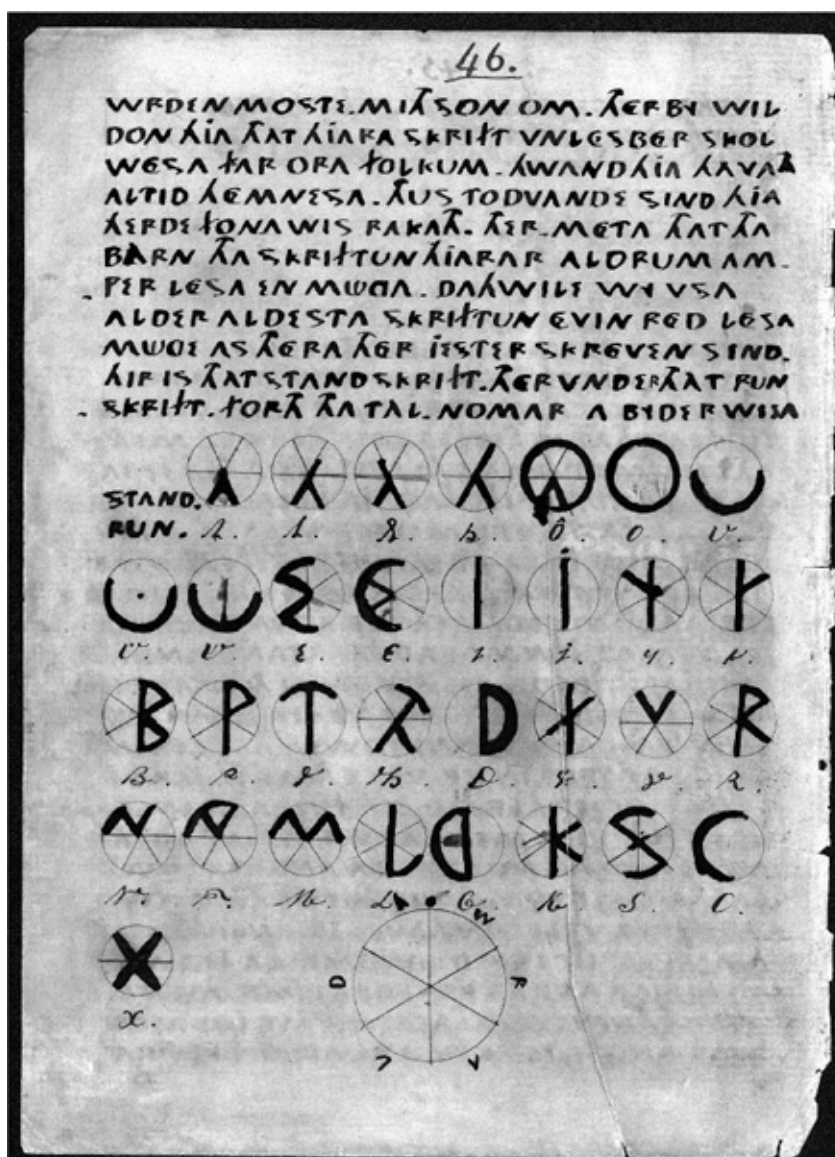 46.
WRDEN MOSTE. MITH SON OM. THERBY WIL
DON HIA THAT HIARA SKRIFT UNLESBER SKOL
WESA FAR ORA FOLKUM. HWAND HIA HAVATH
ALTID HEMNESA. THUS TODVANDE SIND HIA
HERDE FONA WIS RAKATH. THER. META THAT THA
BARN THA SKRIFTUN HIARAR ALDRUM AM-
PER LESA EN MUGA. DAHWILE WY USA
ALDER ALDESTA SKRIFTUN EVIN RED LESA
MUGE AS THERA THER JESTER SKREVEN SIND.
HIR IS THAT STAND SKRIFT. THER UNDER THAT RUN
SKRIFT. FORTH THA TAL-NOMAR A BYDER WISA
STAND.
RUN. A. A. h. Ô. O. U.
U. U. E. E. I. J. Y.
B. P. T. Th. D. F. V. R.
N. M. L. G. K. S. C.
X.
W R A L D A